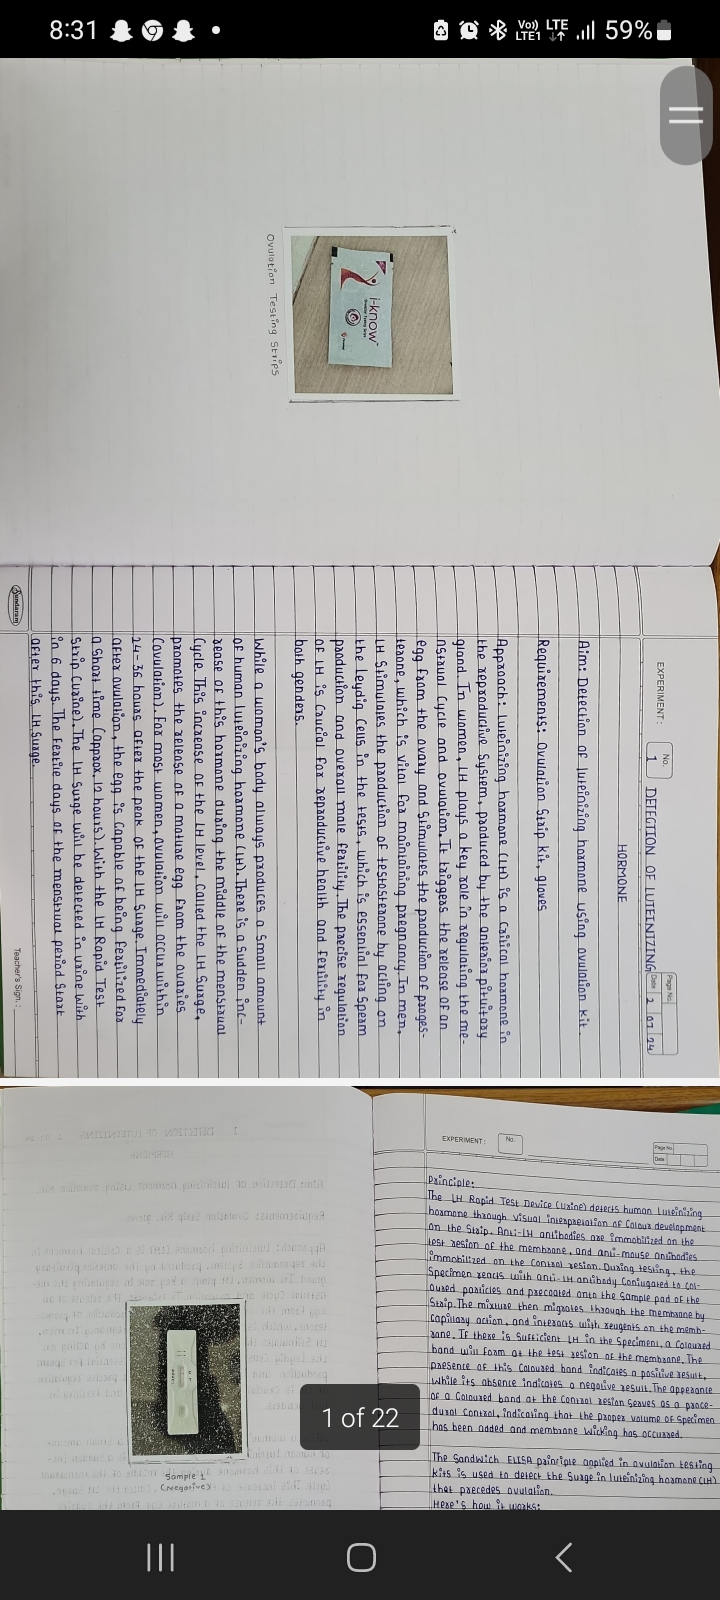 8:31
Vo)) LTE1 LTE 59%
i-know
Ovulation Testing Strips
EXPERIMENT: No. 1
Page No.
Date 2 07 24
DETECTION OF LUTEINIZING
HORMONE
Aim: Detection of luteinizing hormone using ovulation kit.
Requirements: Ovulation Strip Kit, gloves
Approach: Luteinizing hormone (LH) is a critical hormone in
the reproductive System, produced by the anterior pituitary
gland. In women, LH plays a key role in regulating the me-
nstrual cycle and ovulation. It triggers the release of an
egg from the ovary and stimulates the production of proges-
terone, which is vital for maintaining pregnancy. In men,
LH stimulates the production of testosterone by acting on
the Leydig Cells in the testis, which is essential for Sperm
production and overall male fertility. The precise regulation
of LH is Crucial for reproductive health and fertility in
both genders.
While a woman's body always produces a small amount
of human luteinizing hormone (LH). There is a sudden inc-
rease of this hormone during the middle of the menstrual
Cycle. This increase of the LH level, called the LH Surge,
promotes the release of a mature egg from the ovaries
(ovulation). For most women, ovulation will occur within
24-36 hours after the peak of the LH Surge. Immediately
after ovulation, the egg is capable of being fertilized for
a short time (approx. 12 hours). With the LH Rapid Test
Strip (urine). The LH Surge will be detected in urine with
in 6 days. The fertile days of the menstrual period Start
after this LH Surge.
Sundaram
Teacher's Sign.:
Sample 1
(Negative)
EXPERIMENT: No.
Page No.
Date
Principle:
The LH Rapid Test Device (urine) detects human Luteinizing
hormone through visual interpretation of Colour development
on the Strip. Anti-LH antibodies are immobilized on the
test resion of the membrane, and anti-mouse antibodies
immobilized on the control resion. During testing, the
Specimen reacts with anti-LH antibody Conjugated to Col-
oured particles and precoated onto the Sample pad of the
Strip. The mixture then migrates through the membrane by
Capillary action, and interacts with reugents on the memb-
rane. If there is Sufficient LH in the Specimen, a Coloured
band will form at the test resion of the membrane. The
presence of this Coloured band indicates a positive result,
While its absence indicates a negative result. The apperane
of a Coloured band at the Control resion Serves as a proce-
dural Control, indicating that the proper volume of Specimen
has been added and membrane Wicking has occurred.
The Sandwich ELISA principle applied in ovulation testing
Kits is used to detect the Surge in luteinizing hormone (LH)
that precedes ovulation.
Here's how it works:
1 of 22